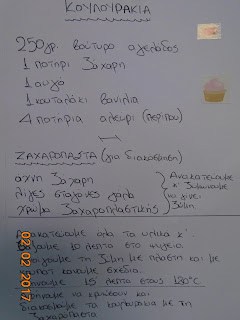 ΚΟΥΛΟΥΡΑΚΙΑ
250γρ. βούτυρο αγελάδος
1 ποτήρι ζάχαρη
1 αυγό
1 κουταλάκι βανίλια
4 ποτήρια αλεύρι (περίπου)
ΖΑΧΑΡΟΠΑΣΤΑ (για διακόσμηση)
άχνη ζάχαρη
λίγες σταγόνες γάλα
χρώμα ζαχαροπλαστικής
Ανακατεύουμε
κ' ζυμώνουμε
να γίνει
ζύμη
Ανακατεύουμε όλα τα υλικά κ'
βάζουμε 10 λεπτά στο ψυγείο.
Ανοίγουμε τη ζύμη με πλάστη και με
κουπάτ κάνουμε σχέδια.
Ψήνουμε 15 λεπτά στους 180°C
Αφήνουμε να κρυώσουν και
διακοσμούμε τα κουλουράκια με τη
ζαχαρόπαστα
02/02/2017